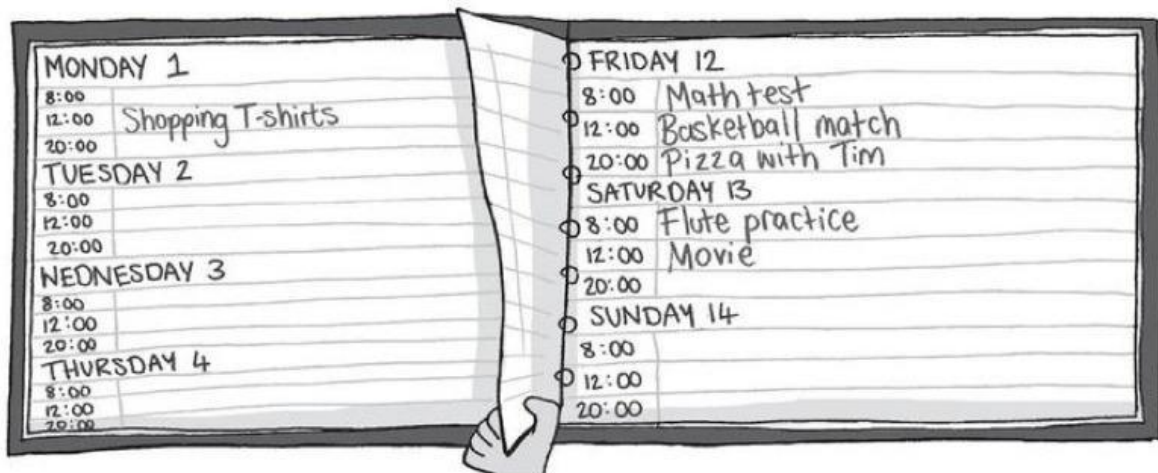 MONDAY 1
8:00
12:00 Shopping T-shirts
20:00
TUESDAY 2
8:00
12:00
20:00
WEDNESDAY 3
8:00
12:00
20:00
THURSDAY 4
8:00
12:00
20:00
FRIDAY 12
8:00 Math test
12:00 Basketball match
20:00 Pizza with Tim
SATURDAY 13
8:00 Flute practice
12:00 Movie
20:00
SUNDAY 14
8:00
12:00
20:00